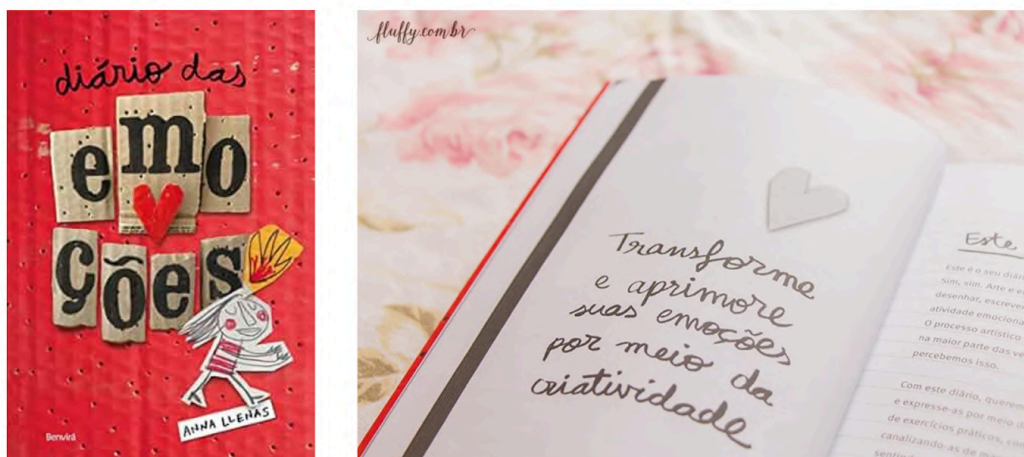 diário das
emo
ções
ANNA LLENAS
Benvirá
fluffy.com.br
Transforme
e aprimore
suas emoções
por meio da
criatividade
Este
Este é o seu diári
sim, sim. Arte e e
desenhar, escreve
atividade emociona
O processo artístico
na maior parte das ve
percebemos isso.
Com este diário, querem
e expresse-as por meio d
de exercícios práticos, co
canalizando-as de m